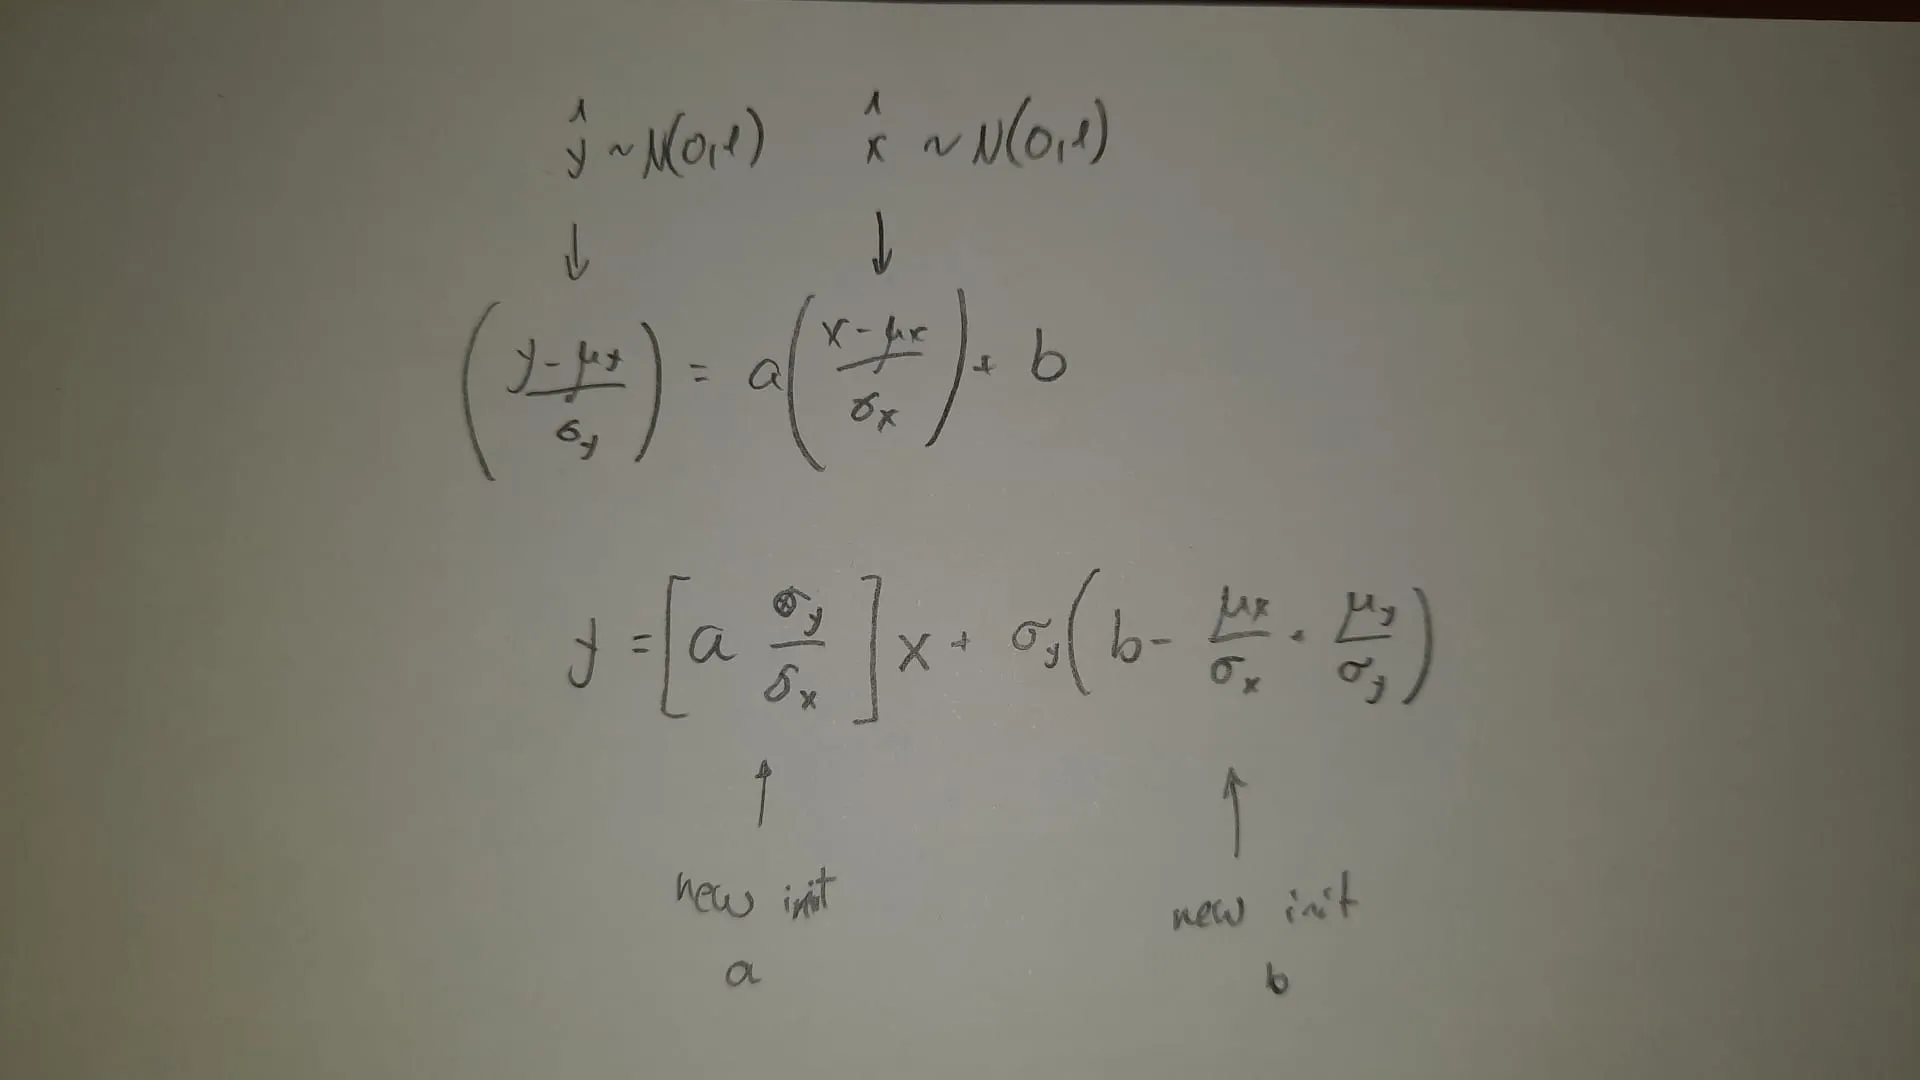 ŷ ~ N(0,1) x̂ ~ N(0,1)
↓ ↓
((y - μy)/σy) = a((x - μx)/σx) + b
y = [a σy/σx] x + σy(b - μx/σx + μy/σy)
↑ ↑
new init new init
a b